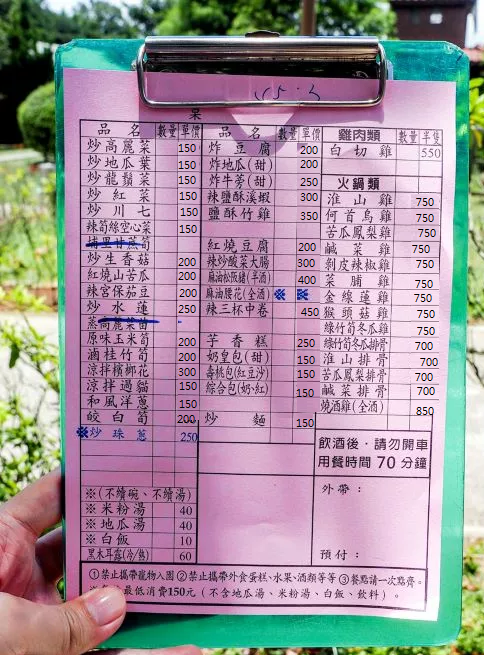 品名 數量 單價
炒高麗菜 150
炒地瓜葉 150
炒龍鬚菜 150
炒紅菜 150
炒川七 150
辣筍絲空心菜 150
埔里甘蔗筍
炒生香菇 200
紅燒山苦瓜 200
辣宮保茄豆 200
炒水蓮 250
蒸高麗菜苗
原味玉米筍 200
滷桂竹筍 200
涼拌檳榔花 300
涼拌過貓 150
和風洋蔥 150
皎白筍 200
※炒珠蔥 250
※(不續碗、不續湯)
※米粉湯 40
※地瓜湯 40
※白飯 10
黑木耳露(冷/熱) 60
品名 數量 單價
炸豆腐 200
炸地瓜(甜) 200
炸牛蒡(甜) 250
辣鹽酥溪蝦 300
鹽酥竹雞 350
紅燒豆腐 200
辣炒酸菜大腸 300
麻油松阪豬(半酒) 400
麻油腰花(全酒)
辣三杯中卷 450
芋香糕 250
奶皇包(甜) 150
壽桃包(紅豆沙) 150
綜合包(奶.紅) 150
炒麵 150
雞肉類 數量 半隻
白切雞 550
火鍋類
淮山雞 750
何首烏雞 750
苦瓜鳳梨雞 750
鹹菜雞 750
剝皮辣椒雞 750
菜脯雞 750
金線蓮雞 750
猴頭菇雞 750
綠竹筍冬瓜雞 750
綠竹筍冬瓜排骨 700
淮山排骨 700
苦瓜鳳梨排骨 700
鹹菜排骨 700
燒酒雞(全酒) 850
飲酒後‧請勿開車
用餐時間 70 分鐘
外帶:
預付:
①禁止攜帶寵物入園②禁止攜帶外食蛋糕、水果、酒類等等③餐點請一次點齊。
最低消費150元(不含地瓜湯、米粉湯、白飯、飲料)。